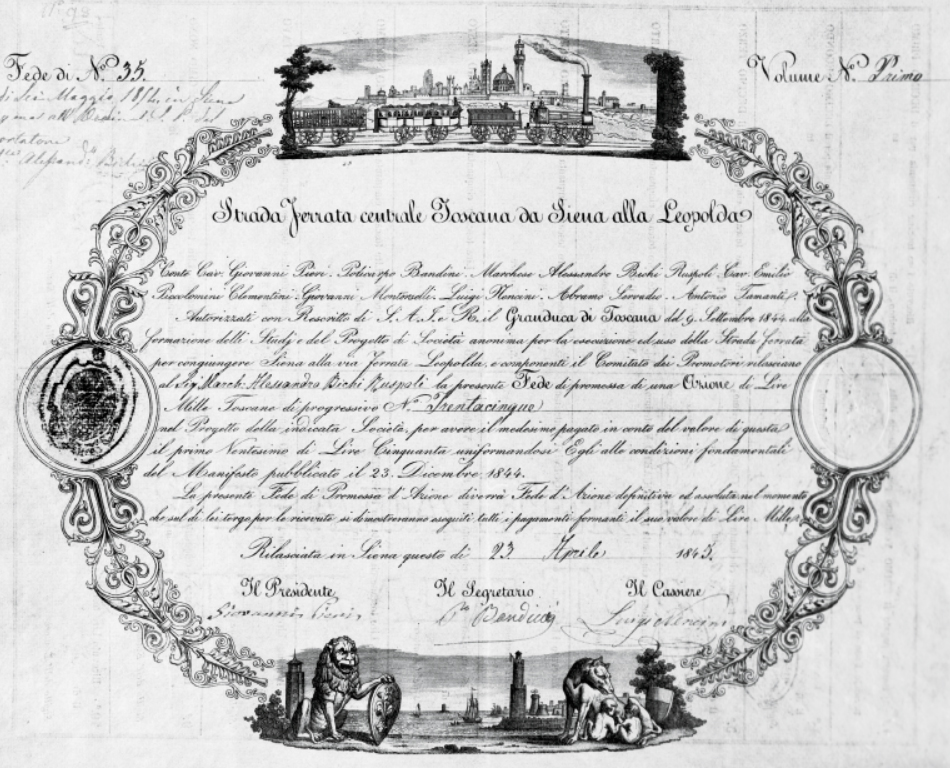 Fede di N.º 35.
Volume N.º Primo
di Sei Maggio 1854, in Siena
Alessandro Bichi
Strada Ferrata centrale Toscana da Siena alla Leopolda
Conte Cav. Giovanni Pieri. Policarpo Bandini. Marchese Alessandro Bichi Ruspoli Cav. Emilio
Piccolomini Clementini. Giovanni Montorselli. Luigi Nencini. Abramo Servadio. Antonio Tamanti.
Autorizzati con Rescritto di S. A. I. e R. il Granduca di Toscana del 9. Settembre 1844. alla
formazione delli Studj e del Progetto di Società anonima per la esecuzione ed uso della Strada Ferrata
per congiungere Siena alla via Ferrata Leopolda, e componenti il Comitato dei Promotori rilasciano
al Sig. March. Alessandro Bichi Ruspoli la presente Fede di promessa di una Azione di Lire
Mille Toscane di progressivo N.º Trentacinque
nel Progetto della indicata Società, per avere il medesimo pagato in conto del valore di questa
il primo Ventesimo di Lire Cinquanta uniformandosi Egli alle condizioni fondamentali
del Manifesto pubblicato il 23. Dicembre 1844.
La presente Fede di Promessa d'Azione diverrà Fede d'Azione definitiva ed assoluta nel momento
che sul di lei tergo per le ricevute si dimostreranno eseguiti tutti i pagamenti formanti il suo valore di Lire Mille.
Rilasciata in Siena questo dì 23 Aprile 1845.
Il Presidente
Il Segretario
Il Cassiere
Giovanni Pieri
P. Bandini
Luigi Nencini